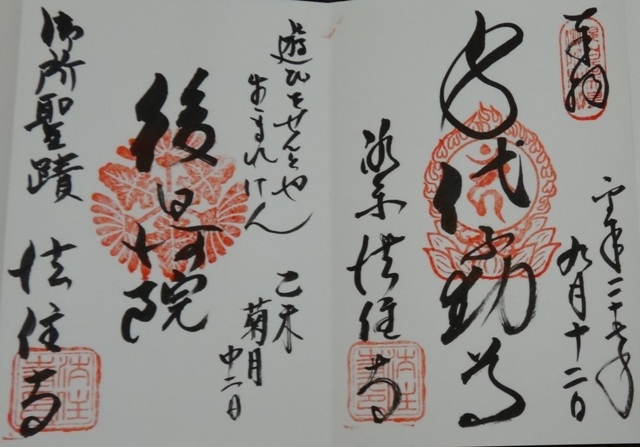 奉拝
平成二十七年
九月十二日
身代不動尊
洛東 法住寺
遊びをせんとや
生まれけん
乙未
菊月
中二日
後白河院
御所聖蹟 法住寺